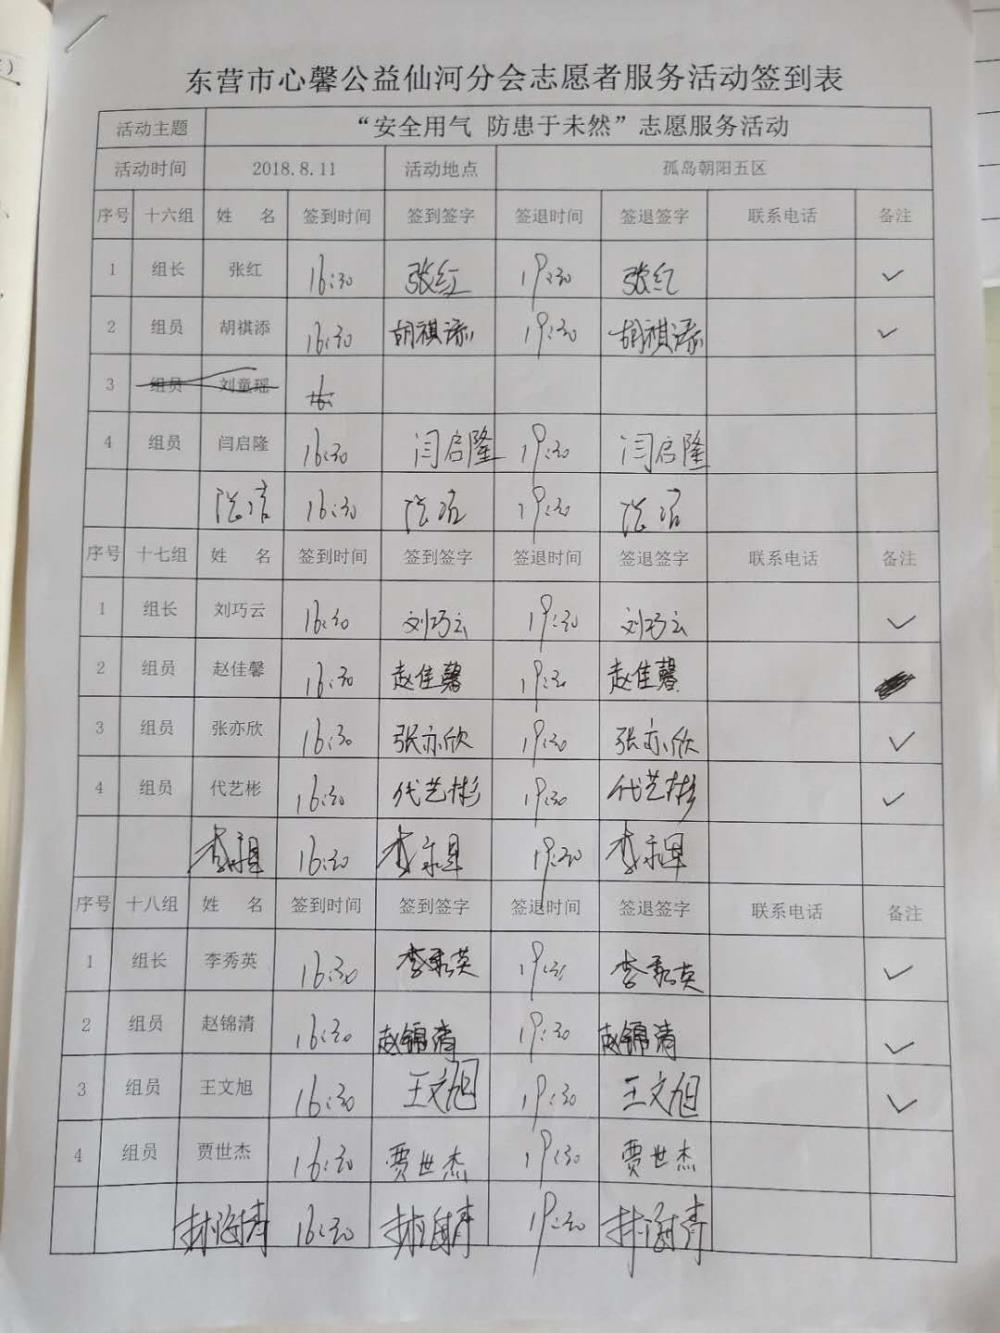 东营市心馨公益仙河分会志愿者服务活动签到表
活动主题 “安全用气 防患于未然”志愿服务活动
活动时间 2018.8.11 活动地点 孤岛朝阳五区
序号 十六组 姓 名 签到时间 签到签字 签退时间 签退签字 联系电话 备注
1 组长 张红 16:30 张红 19:30 张红 ✓
2 组员 胡祺添 16:30 胡祺添 19:30 胡祺添 ✓
3 组员 刘童瑶
4 组员 闫启隆 16:30 闫启隆 19:30 闫启隆
16:30 19:30
序号 十七组 姓 名 签到时间 签到签字 签退时间 签退签字 联系电话 备注
1 组长 刘巧云 16:30 刘巧云 19:30 刘巧云 ✓
2 组员 赵佳馨 16:30 赵佳馨 19:30 赵佳馨
3 组员 张亦欣 16:30 张亦欣 19:30 张亦欣 ✓
4 组员 代艺彬 16:30 代艺彬 19:30 代艺彬 ✓
16:30 19:30
序号 十八组 姓 名 签到时间 签到签字 签退时间 签退签字 联系电话 备注
1 组长 李秀英 16:30 李秀英 19:30 李秀英 ✓
2 组员 赵锦清 16:30 赵锦清 19:30 赵锦清 ✓
3 组员 王文旭 16:30 王文旭 19:30 王文旭 ✓
4 组员 贾世杰 16:30 贾世杰 19:30 贾世杰
林海青 16:30 林海青 19:30 林海青